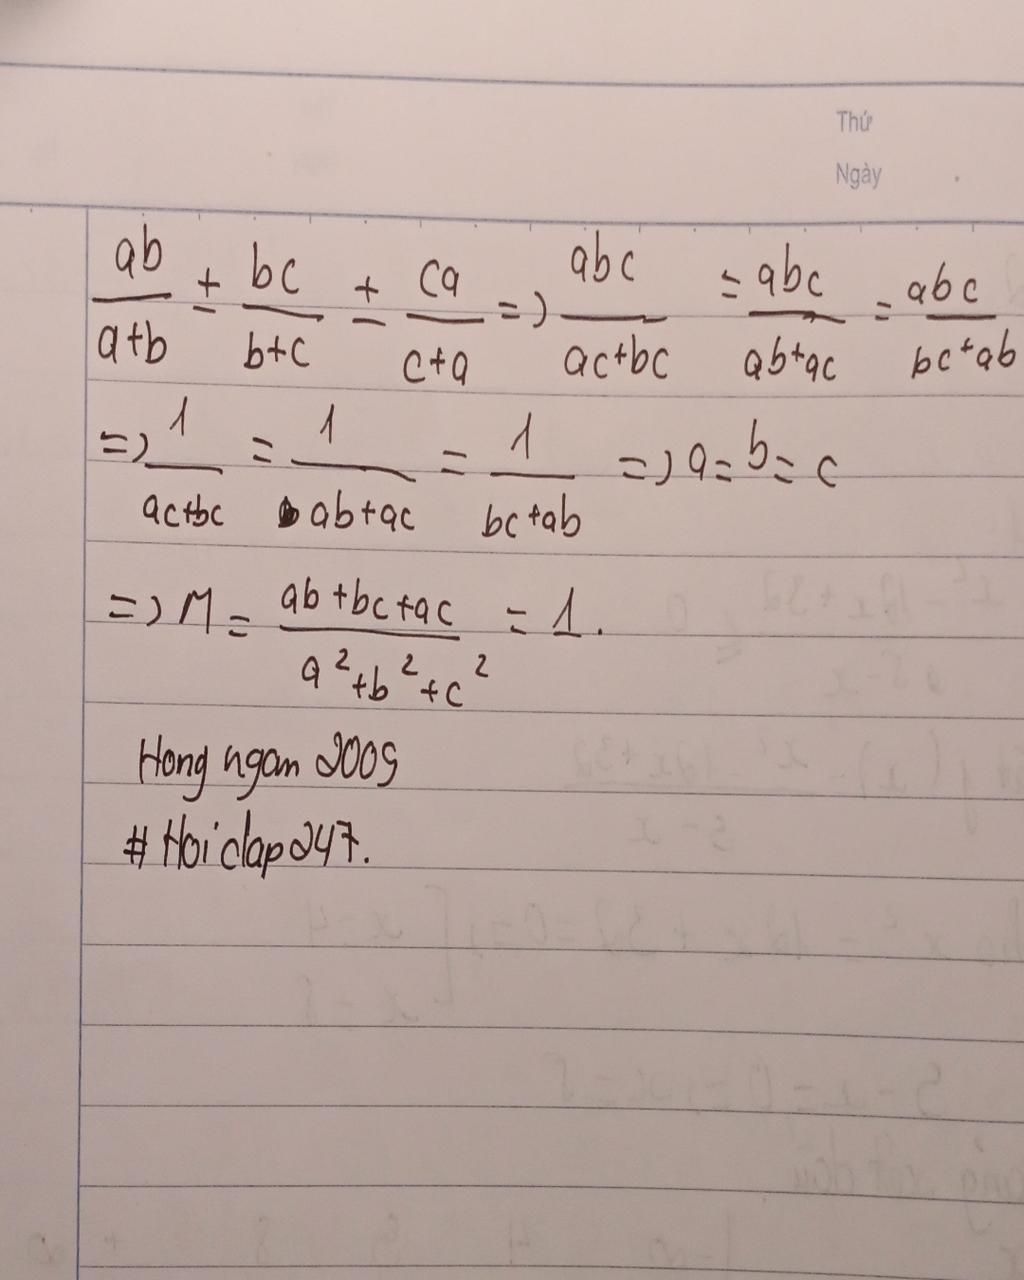 Thứ
Ngày
ab/a+b ± bc/b+c ± ca/c+a => abc/ac+bc = abc/ab+ac = abc/bc+ab
=> 1/ac+bc = 1/ab+ac = 1/bc+ab => a = b = c
=> M = ab+bc+ac/a²+b²+c² = 1.
Hong ngam 2009
# Hoi clap 247.